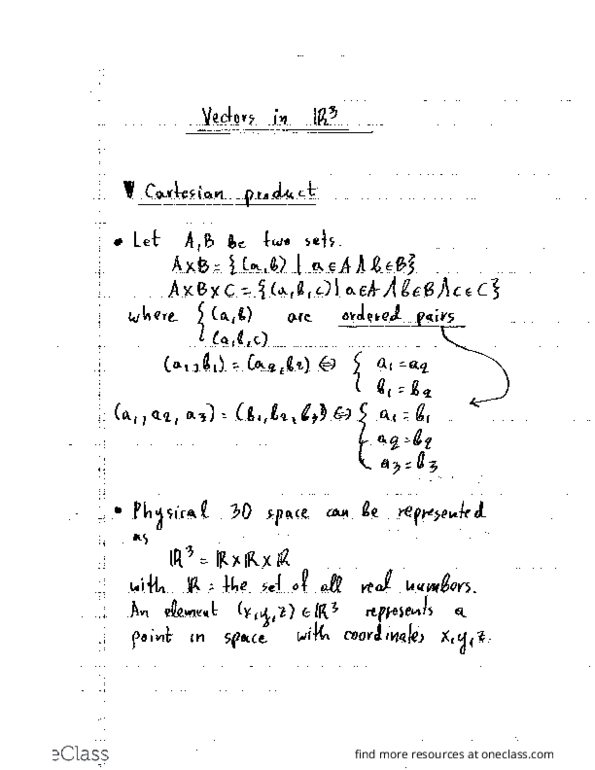 Vectors in ℝ³
▼ Cartesian product
• Let A,B be two sets.
A×B = {(a,b) | a∈A ∧ b∈B}
A×B×C = {(a,b,c) | a∈A ∧ b∈B ∧ c∈C}
where { (a,b) are ordered pairs
(a,b,c)
(a₁,b₁) = (a₂,b₂) ⇔ { a₁ = a₂
b₁ = b₂
(a₁,a₂,a₃) = (b₁,b₂,b₃) ⇔ { a₁ = b₁
a₂ = b₂
a₃ = b₃
• Physical 3D space can be represented
as
ℝ³ = ℝ×ℝ×ℝ
with ℝ = the set of all real numbers.
An element (x,y,z) ∈ ℝ³ represents a
point in space with coordinates x,y,z.
eClass
find more resources at oneclass.com